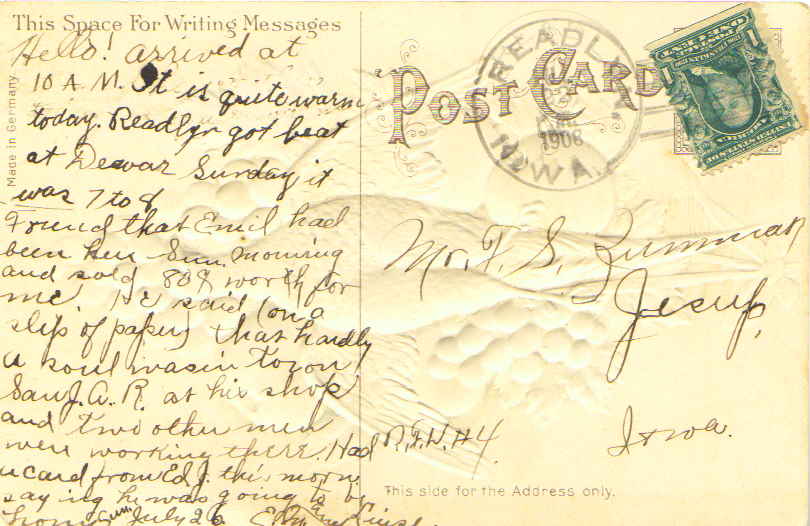 This Space For Writing Messages
Made in Germany
Hello! arrived at
10 A.M. It is quite warm
today. Readlyn got beat
at Dewar Sunday it
was 7 to 8
Found that Emil had
been here Sun. morning
and sold 80¢ worth for
me, He said (on a
slip of paper) that hardly
a soul was in town
Saw J. A. R. at his shop
and two other men
were working there. Had
a card from Ed J. this morn.
saying he was going to be
home Sun July 26
POST CARD
READLYN
1908
IOWA
Mr. F. S.
Jesup,
Iowa.
R.F.D. #4.
This side for the Address only.